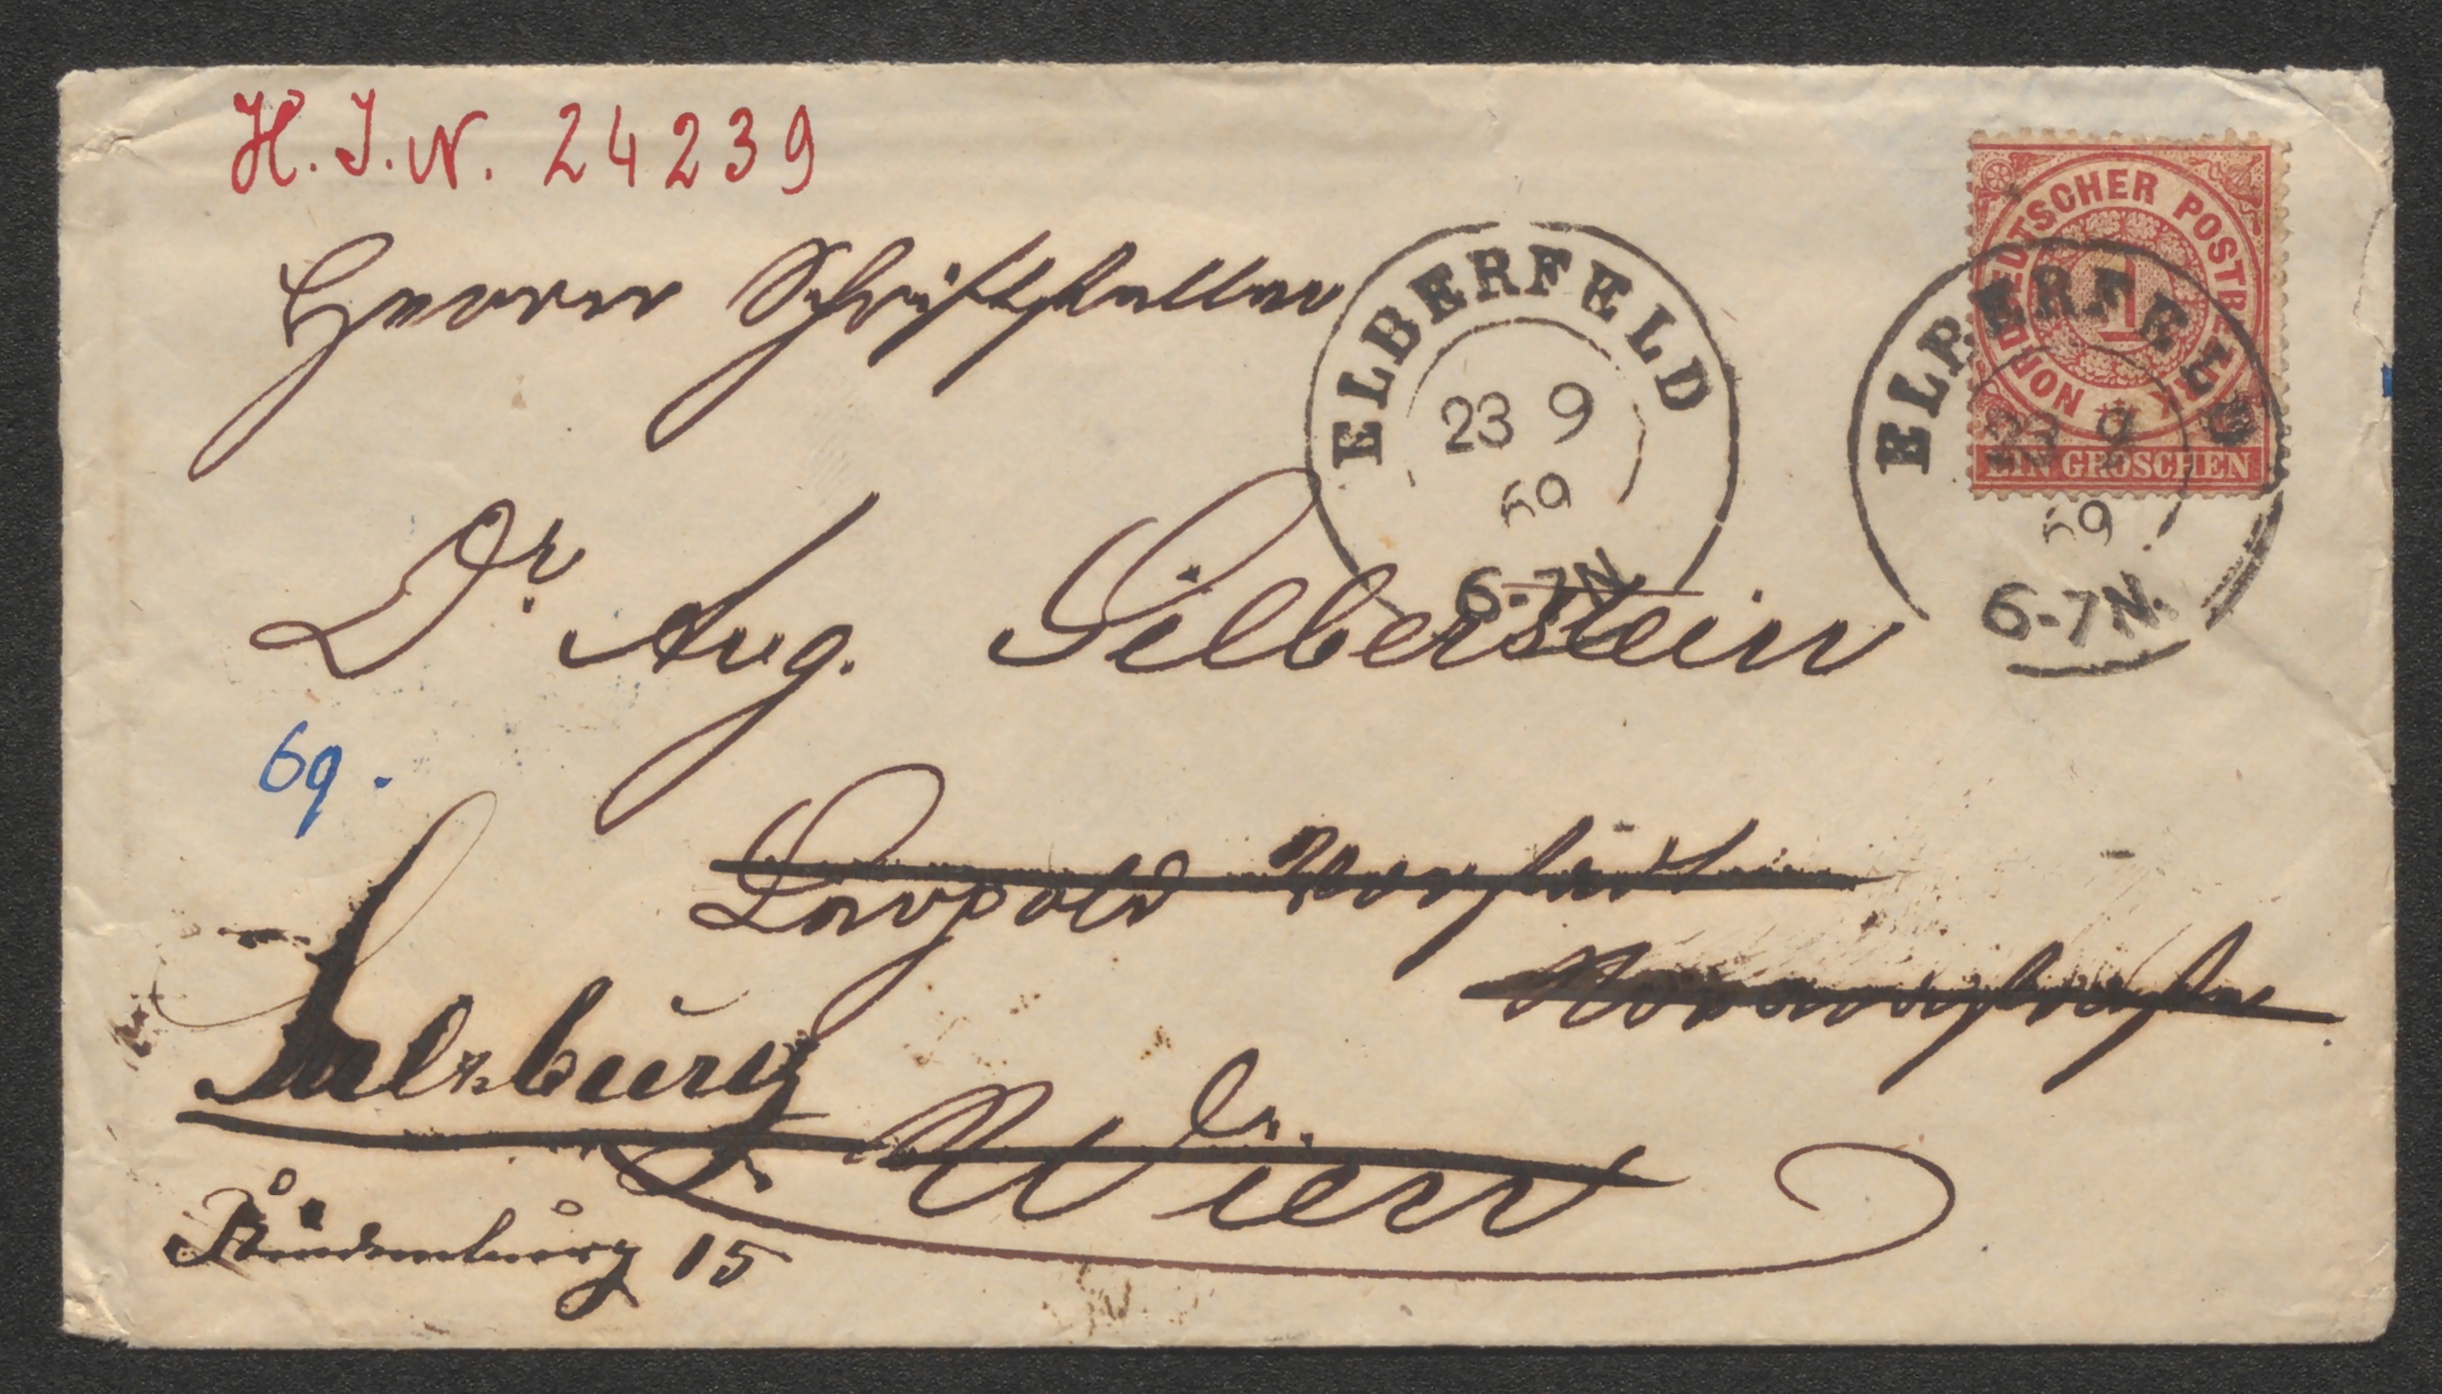 H. I. N. 24239
NORDDEUTSCHER POSTBEZIRK
1
EIN GROSCHEN
ELBERFELD
23 9
69
6-7N
ELBERFELD
23 9
69
6-7N.
Herrn Schriftsteller
Dr. Aug. Silberstein
69.
Leopold Vorstadt
Novaragasse
Salzburg
Wien
15